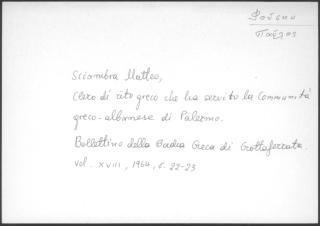 Φούσκη
Παύλος
Sciambra Matteo,
Clero di rito greco che ha servito la Communità
greco-albanese di Palermo.
Bollettino della Badia Greca di Grottaferrata.
vol. XVIII, 1964, σ. 22-23